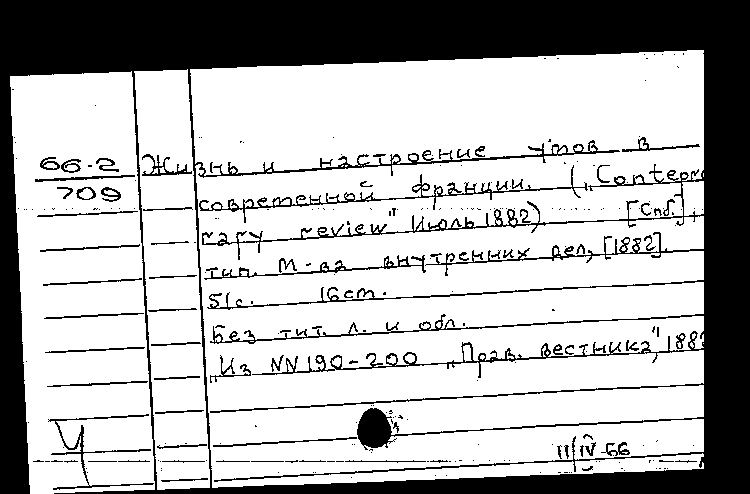 66-2
709
Жизнь и настроение умов в
современной франции. („Contepmo
rary review" Июль 1882) [Спб.],
тип. М-ва внутренних дел, [1882].
51с. 16см.
Без тит. л. и обл.
„Из NN 190-200 „Прав. вестника", 188
Ч
11/IV-66